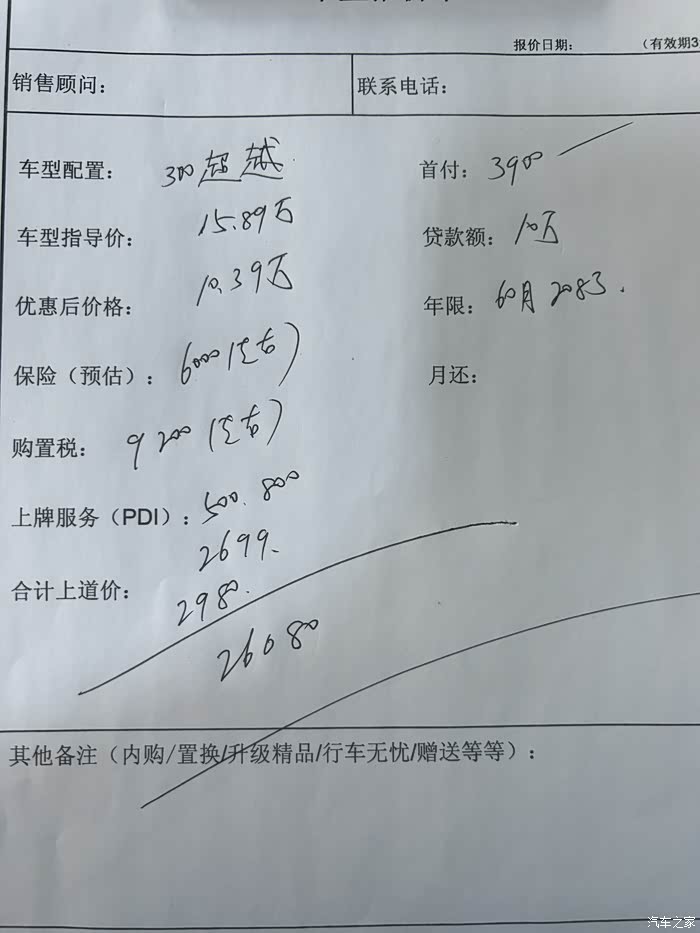 报价日期： （有效期3
销售顾问： 联系电话：
车型配置： 300超越 首付： 3900
车型指导价： 15.89万 贷款额： 10万
优惠后价格： 10.39万 年限： 60月 2083.
保险（预估）： 6000(左右) 月还：
购置税： 9200(左右)
上牌服务（PDI）： 500.800
2699.
合计上道价： 2980.
26080
其他备注（内购/置换/升级精品/行车无忧/赠送等等）：
汽车之家